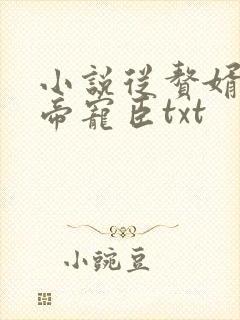 小説從贅婿
帝寵臣txt
小豌豆